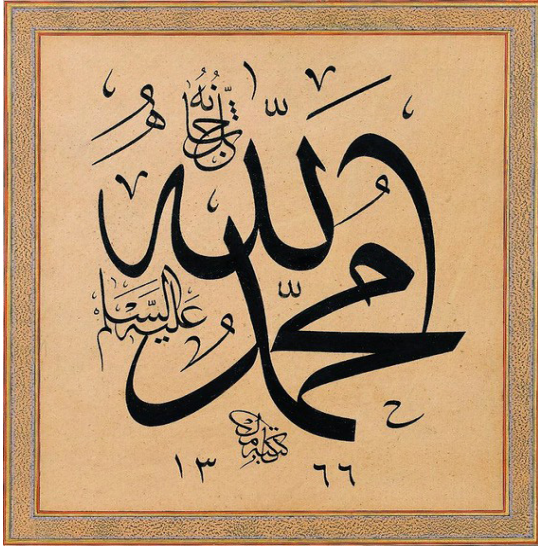 الله
جل جلاله
محمد
عليه السلام
١٣٦٦